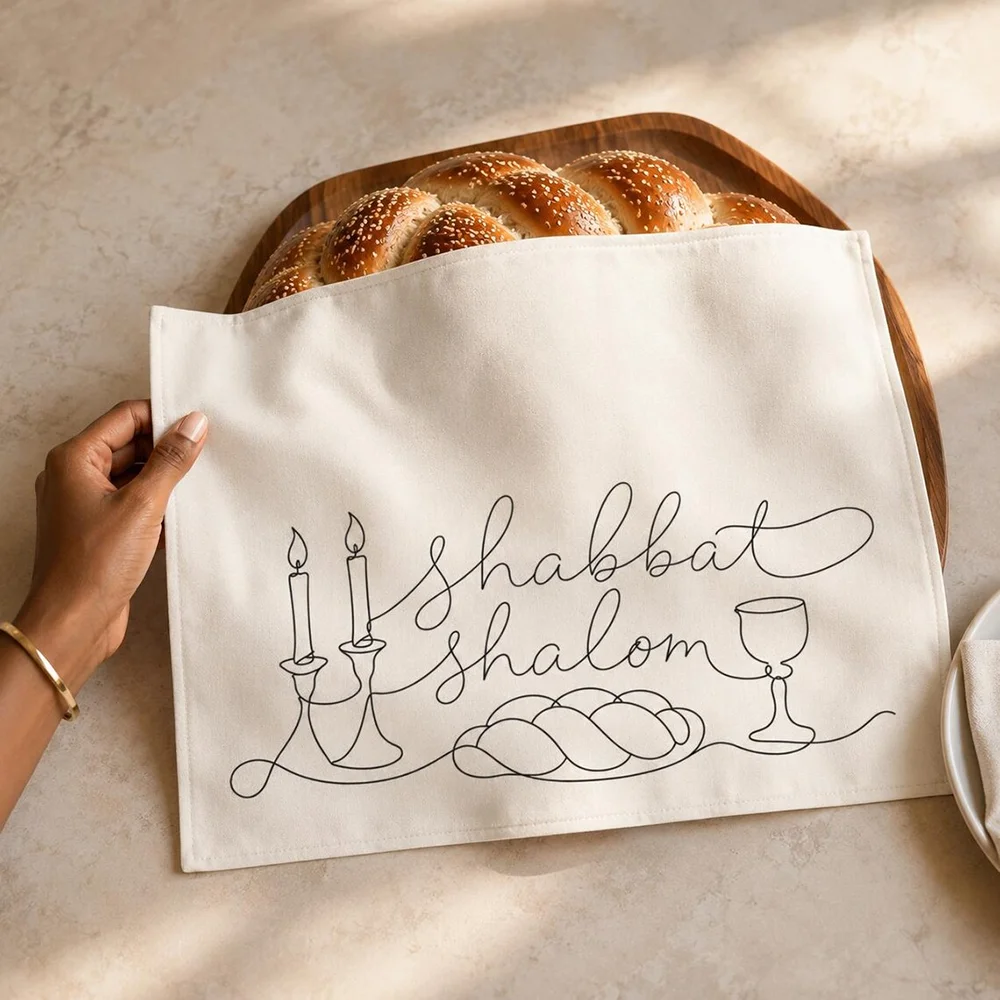 shabbat
shalom